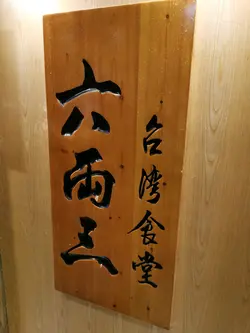 六両三
台湾食堂